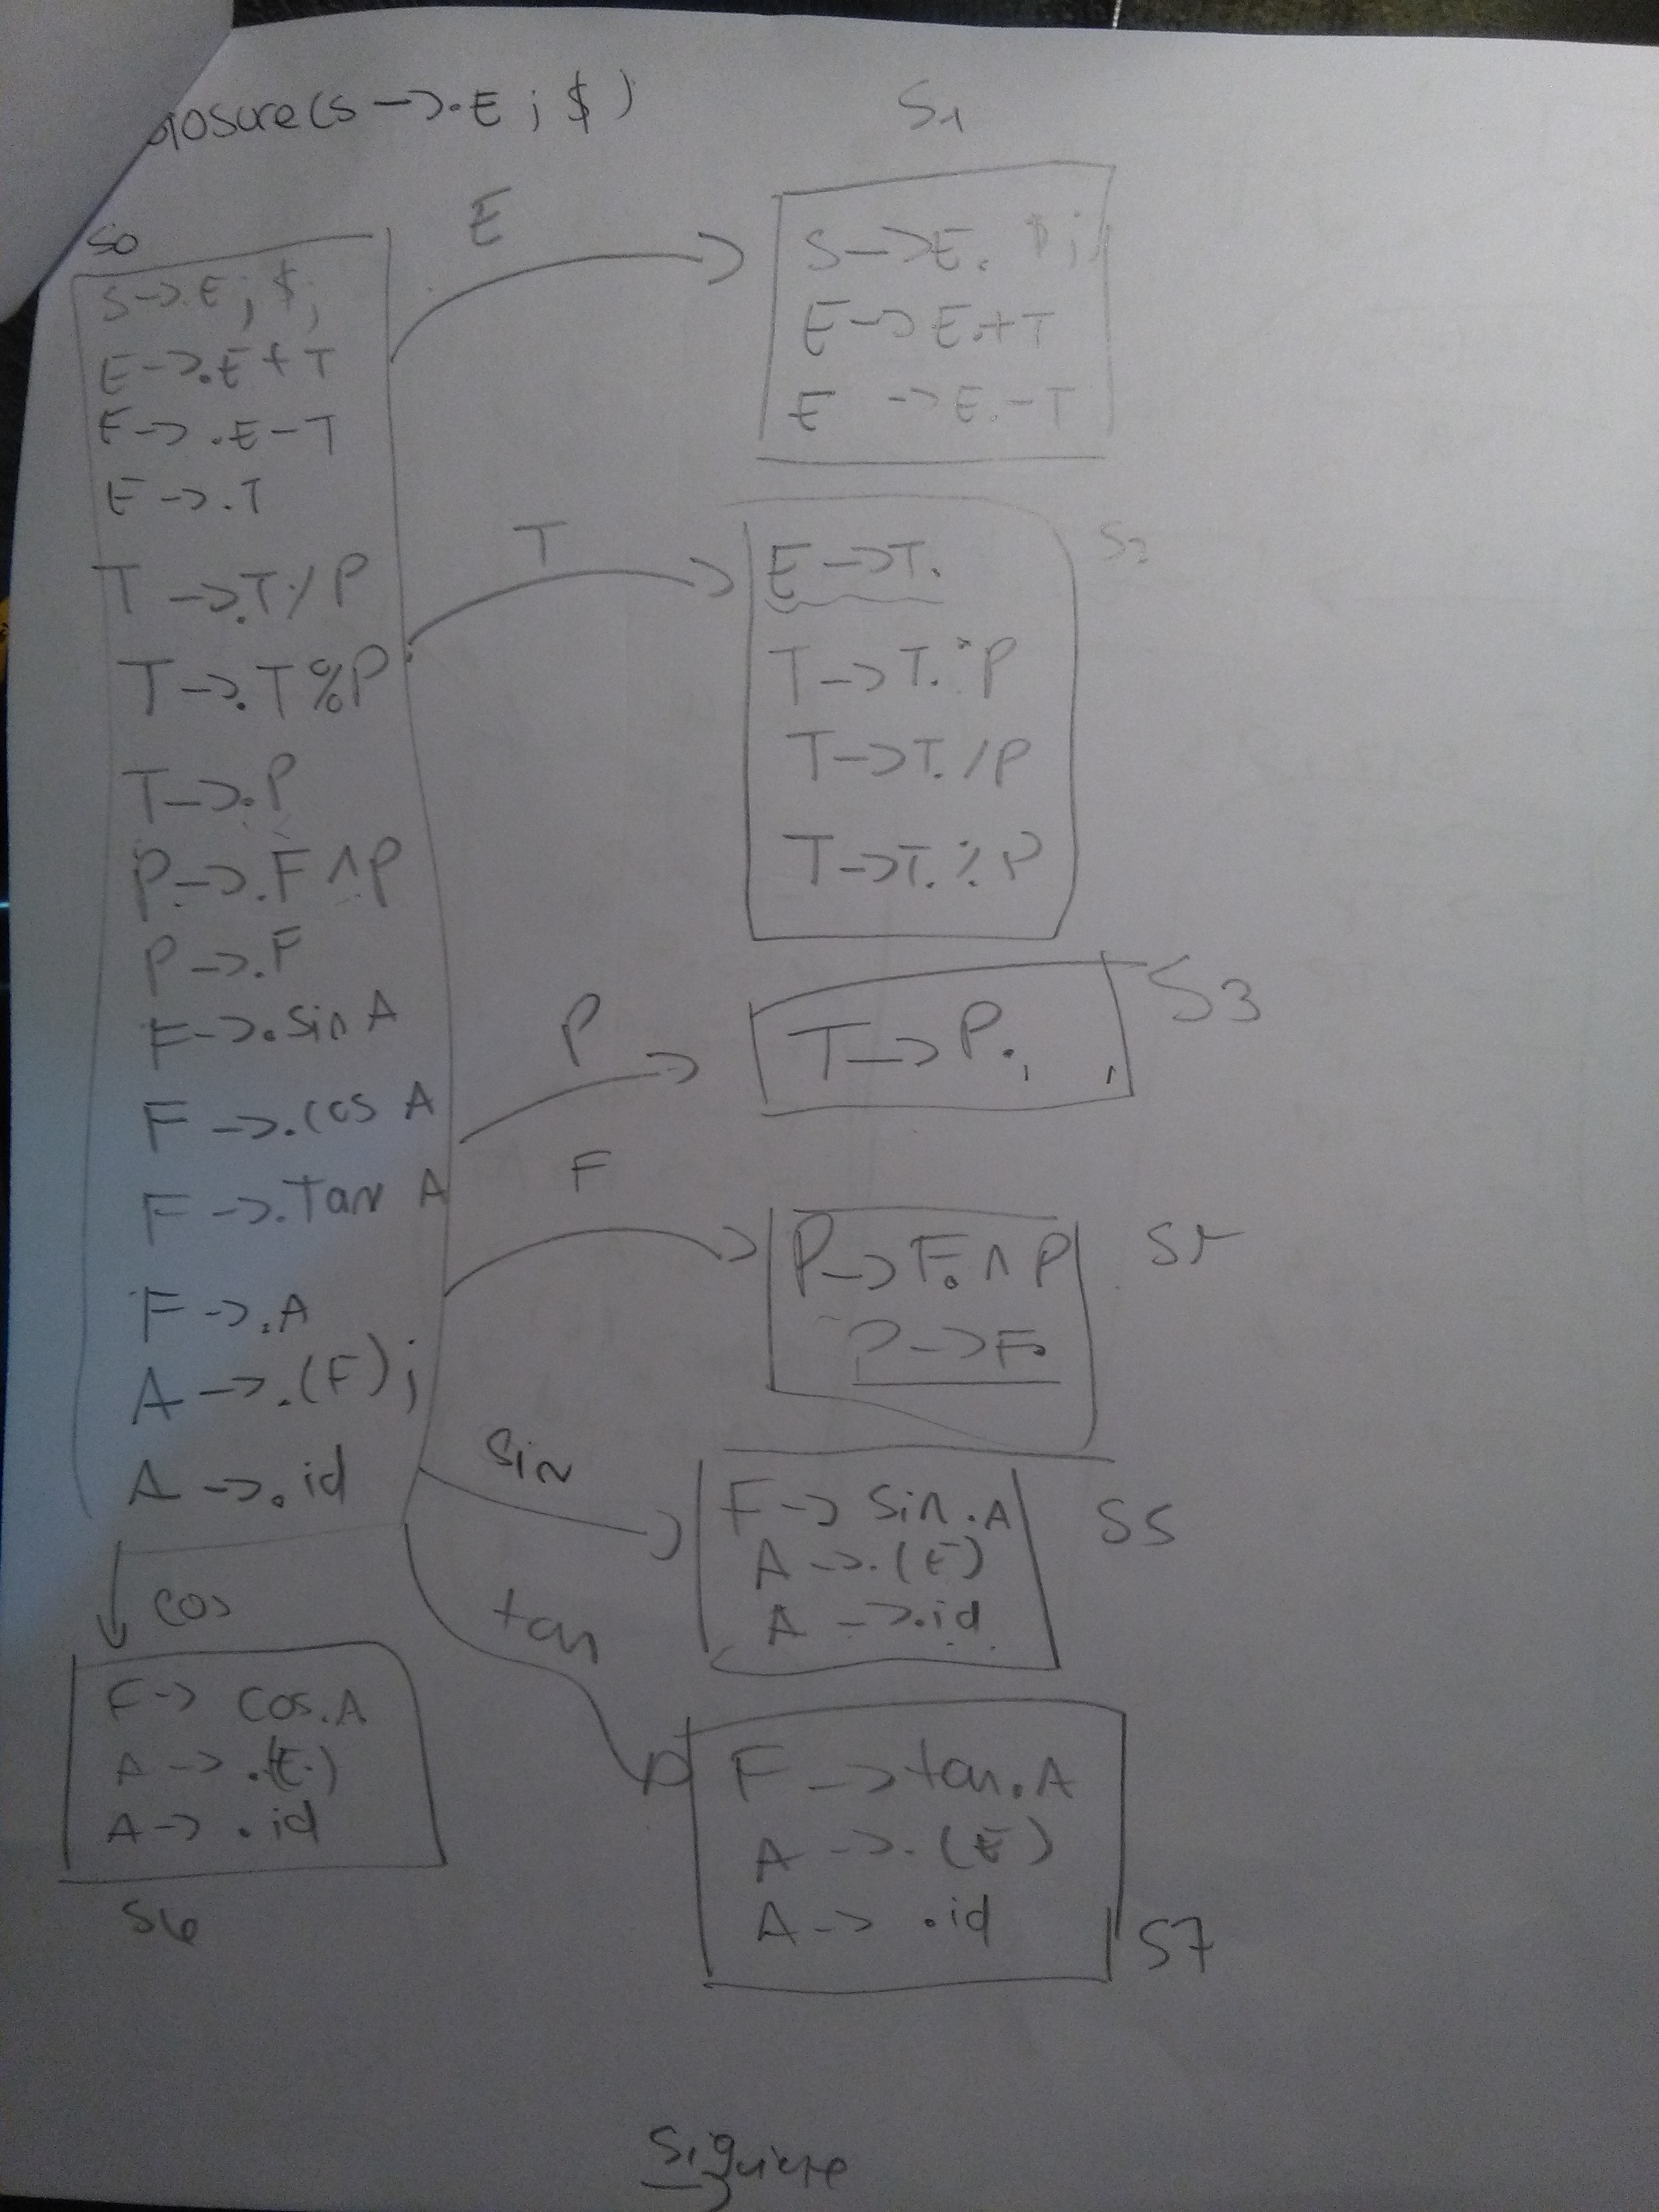 closure(S->.E ; $)
S0
S->.E ; $;
E->.E+T
E->.E-T
E->.T
T->.T/P
T->.T%P
T->.P
P->.F^P
P->.F
F->.sin A
F->.cos A
F->.Tan A
F->.A
A->.(F);
A->.id
E
S1
S->E. $;
E->E.+T
E->E.-T
T
S2
E->T.
T->T.*P
T->T./P
T->T.%P
P
S3
T->P.
F
P->F.^P
P->F.
sin
S5
F->sin.A
A->.(E)
A->.id
cos
F->cos.A
A->.(E)
A->.id
S6
tan
F->tan.A
A->.(E)
A->.id
S7
Siguiente